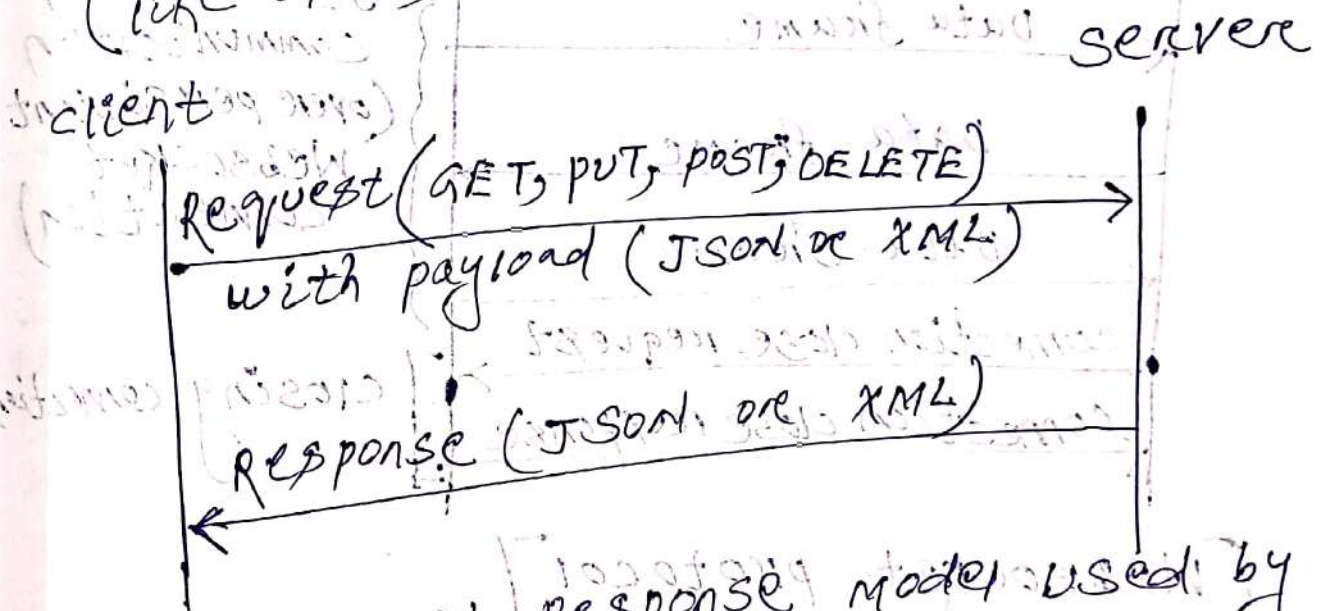 server
client
Request (GET, PUT, POST, DELETE)
with payload (JSON or XML)
Response (JSON or XML)
Response model used by